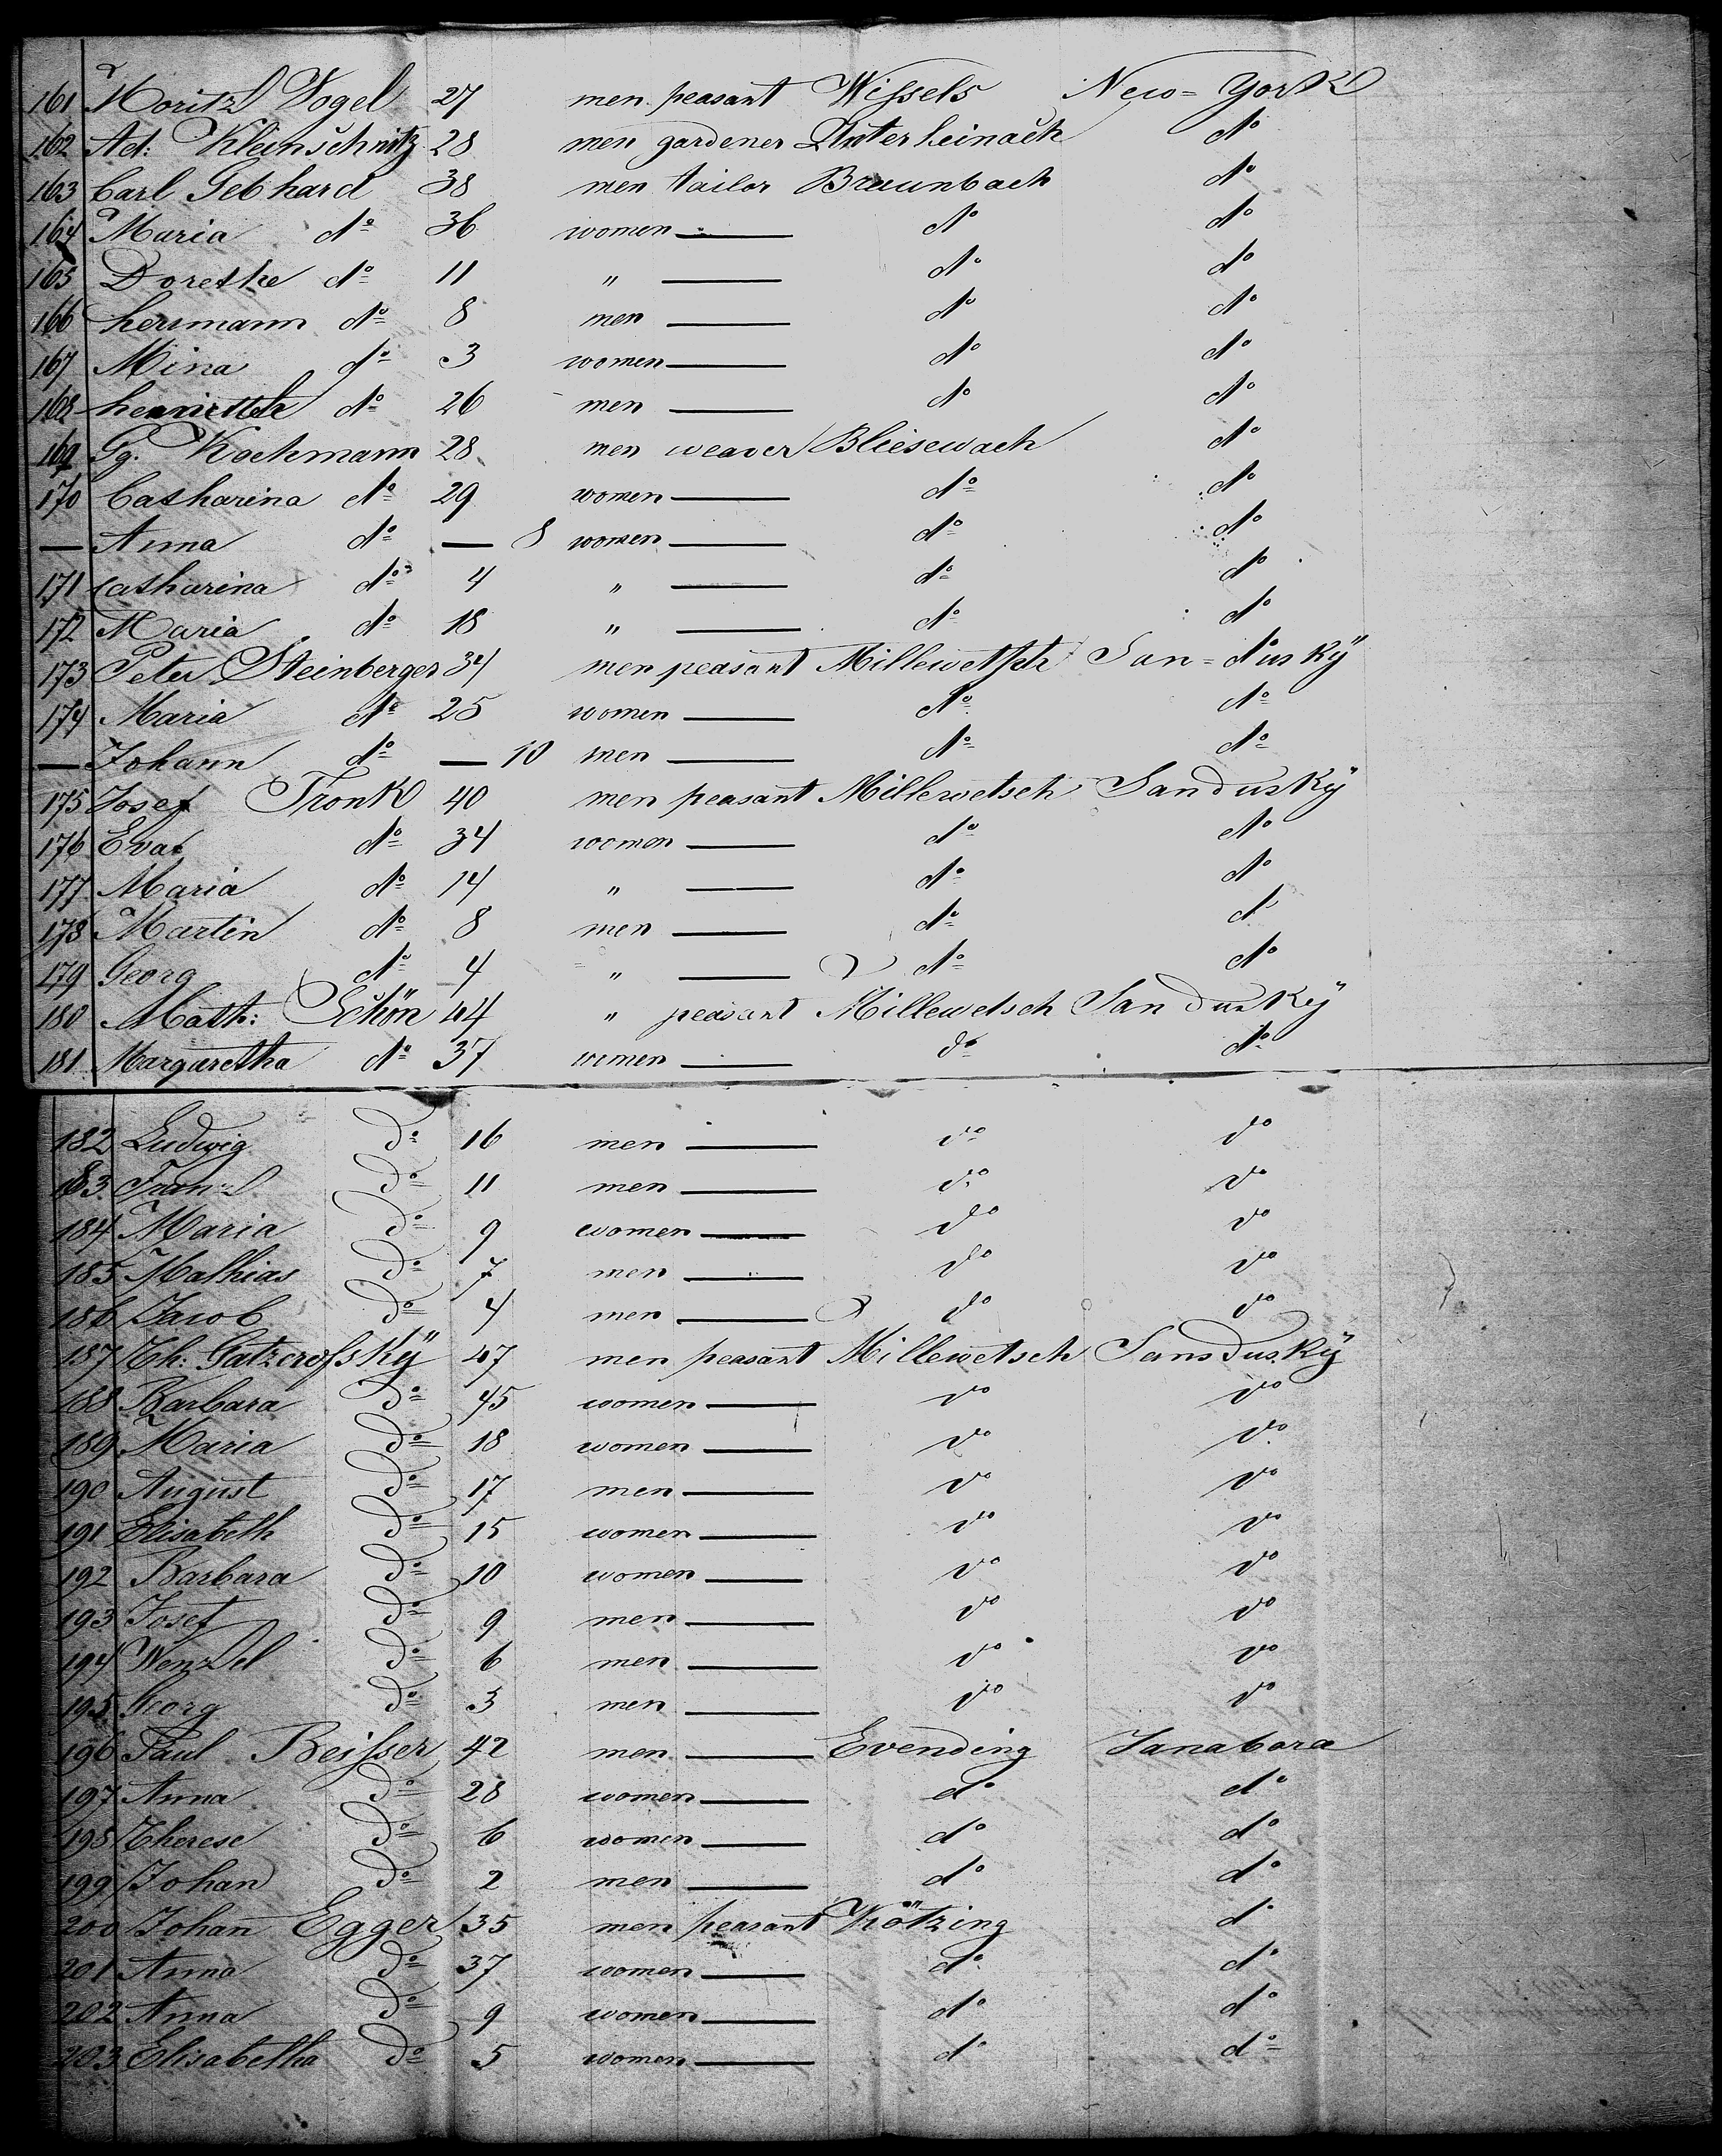 161 Moritz Vogel 27 men peasant Wissels New-York
162 Ad: Kleinschnitz 28 men gardener Unterleinach do
163 Carl Gebhard 38 men tailor Braunbach do
164 Maria do 36 women — do do
165 Dorethe do 11 " — do do
166 herrmann do 8 men — do do
167 Mina do 3 women — do do
168 henriette do 26 men — do do
169 Gg. Kochmann 28 men weaver Bliesewach do
170 Catharina do 29 women — do do
— Anna do — 8 women — do do
171 catharina do 4 " — do do
172 Maria do 18 " — do do
173 Peter Steinberger 34 men peasant Millewetsch San-duskÿ
174 Maria do 25 women — do do
— Johann do — 10 men — do do
175 Josef Tronk 40 men peasant Millewetsch Sanduskÿ
176 Eva do 34 women — do do
177 Maria do 14 " — do do
178 Martin do 8 men — do d
179 Georg do 4 " — do do
180 Math: Schön 44 " peasant Millewetsch Sanduskÿ
181 Margaretha do 37 women — do do
182 Ludwig do 16 men — do do
183 Franz do 11 men — do do
184 Maria do 9 women — do do
185 Mathias do 7 men — do do
186 Jacob do 4 men — do do
187 Th: Gatzcrofskÿ 47 men peasant Millewetsch Sanduskÿ
188 Barbara do 45 women — do do
189 Maria do 18 women — do do
190 August do 17 men — do do
191 Elisabeth do 15 women — do do
192 Barbara do 10 women — do do
193 Josef do 9 men — do do
194 Wenzel do 6 men — do do
195 Georg do 3 men — do do
196 Paul Reisser 42 men — Evending Janabora
197 Anna do 28 women — do do
198 Therese do 6 women — do do
199 Johan do 2 men — do do
200 Johan Egger 35 men peasant Kötzing do
201 Anna do 37 women — do do
202 Anna do 9 women — do do
203 Elisabetha do 5 women — do do